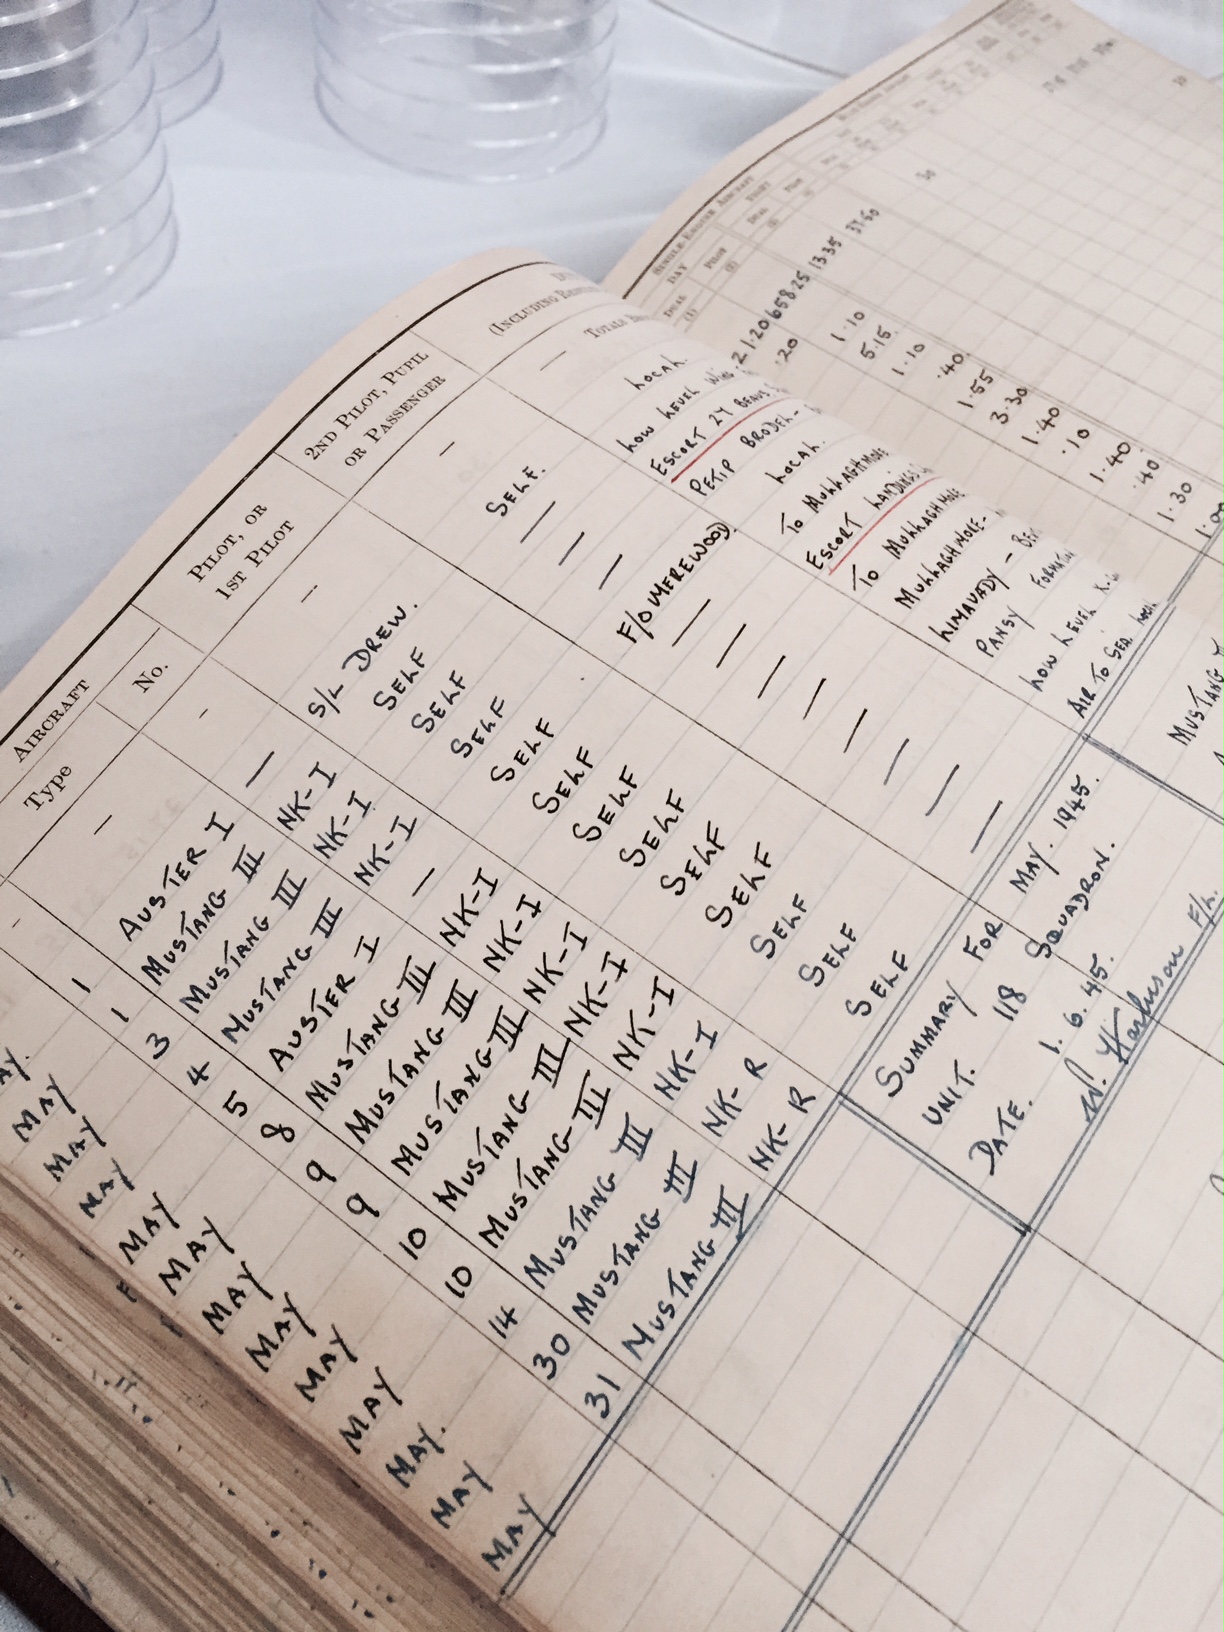 AIRCRAFT
PILOT, OR
1ST PILOT
2ND PILOT, PUPIL
OR PASSENGER
(INCLUDING
Type No.
TOTALS
SINGLE-ENGINE AIRCRAFT
DAY NIGHT
DUAL PILOT DUAL PILOT
(1) (2) (3)
21.20 658.25 13.35 37.50 30
1 AUSTER I — S/L DREW. SELF. LOCAL. .20
MAY 1 MUSTANG III NK-I SELF — LOW LEVEL 1.10
MAY 3 MUSTANG III NK-I SELF — ESCORT 24 BEAUS 5.15
MAY 4 MUSTANG III NK-I SELF — PETIP BRODEL- 1.10
MAY 5 AUSTER I — SELF F/O MEREWOOD LOCAL. .40
MAY 8 MUSTANG III NK-I SELF — TO MULLAGHMORE 1.55
MAY 9 MUSTANG III NK-I SELF — ESCORT LANDINGS 3.30
MAY 9 MUSTANG III NK-I SELF — TO MULLAGHMORE 1.40
MAY 10 MUSTANG III NK-I SELF — MULLAGHMORE- .10
MAY 10 MUSTANG III NK-I SELF — LIMAVADY - 1.40
MAY. 14 MUSTANG III NK-I SELF — PANSY .40
MAY 30 MUSTANG III NK-R SELF — LOW LEVEL 1.30
MAY 31 MUSTANG III NK-R SELF — AIR TO SEA
SUMMARY FOR MAY. 1945. MUSTANG
UNIT. 118 SQUADRON.
DATE. 1.6.45.